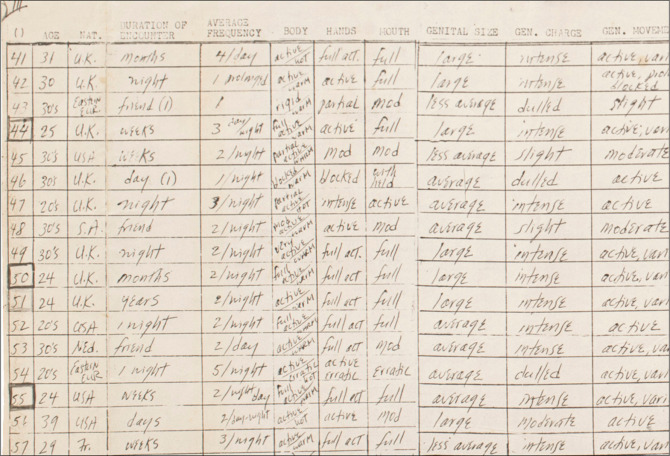 ( ) AGE NAT. DURATION OF ENCOUNTER AVERAGE FREQUENCY BODY HANDS MOUTH GENITAL SIZE GEN. CHARGE GEN. MOVEME
41 31 U.K. months 4/day active hot full act. full large intense active, vari
42 30 U.K. night 1 active warm active full large intense active, blocked
43 30's Eastern Eur friend (1) 1 rigid warm partial mod less average dulled slight
44 25 U.K. weeks 3 day/night full active warm active full large intense active, vari
45 30's USA weeks 2/night partial active warm mod mod less average slight moderate
46 30's U.K. day (1) 1/night blocked warm blocked with held average dulled active
47 20's U.K. night 3/night partial active hot intense active average intense active
48 30's S.A. friend 2/night mod active warm active mod average slight moderate
49 30's U.K. night 2/night very active warm full act. full large intense active, vari
50 24 U.K. months 2/night full active warm full act full large intense active, vari
51 24 U.K. years 2/night active warm full act full large intense active, vari
52 20's USA 1 night 2/night full active warm full act full average intense active
53 30's Ned. friend 2/day active warm full act mod average intense active, vari
54 20's Eastern Eur 1 night 5/night active erratic hot active erratic erratic average dulled active, vari
55 24 USA weeks 2/night day full active warm full act full average intense active, vari
56 39 USA days 2/day-night active hot active mod large moderate active
57 29 Fr. weeks 3/night active warm full act full less average intense active, vari